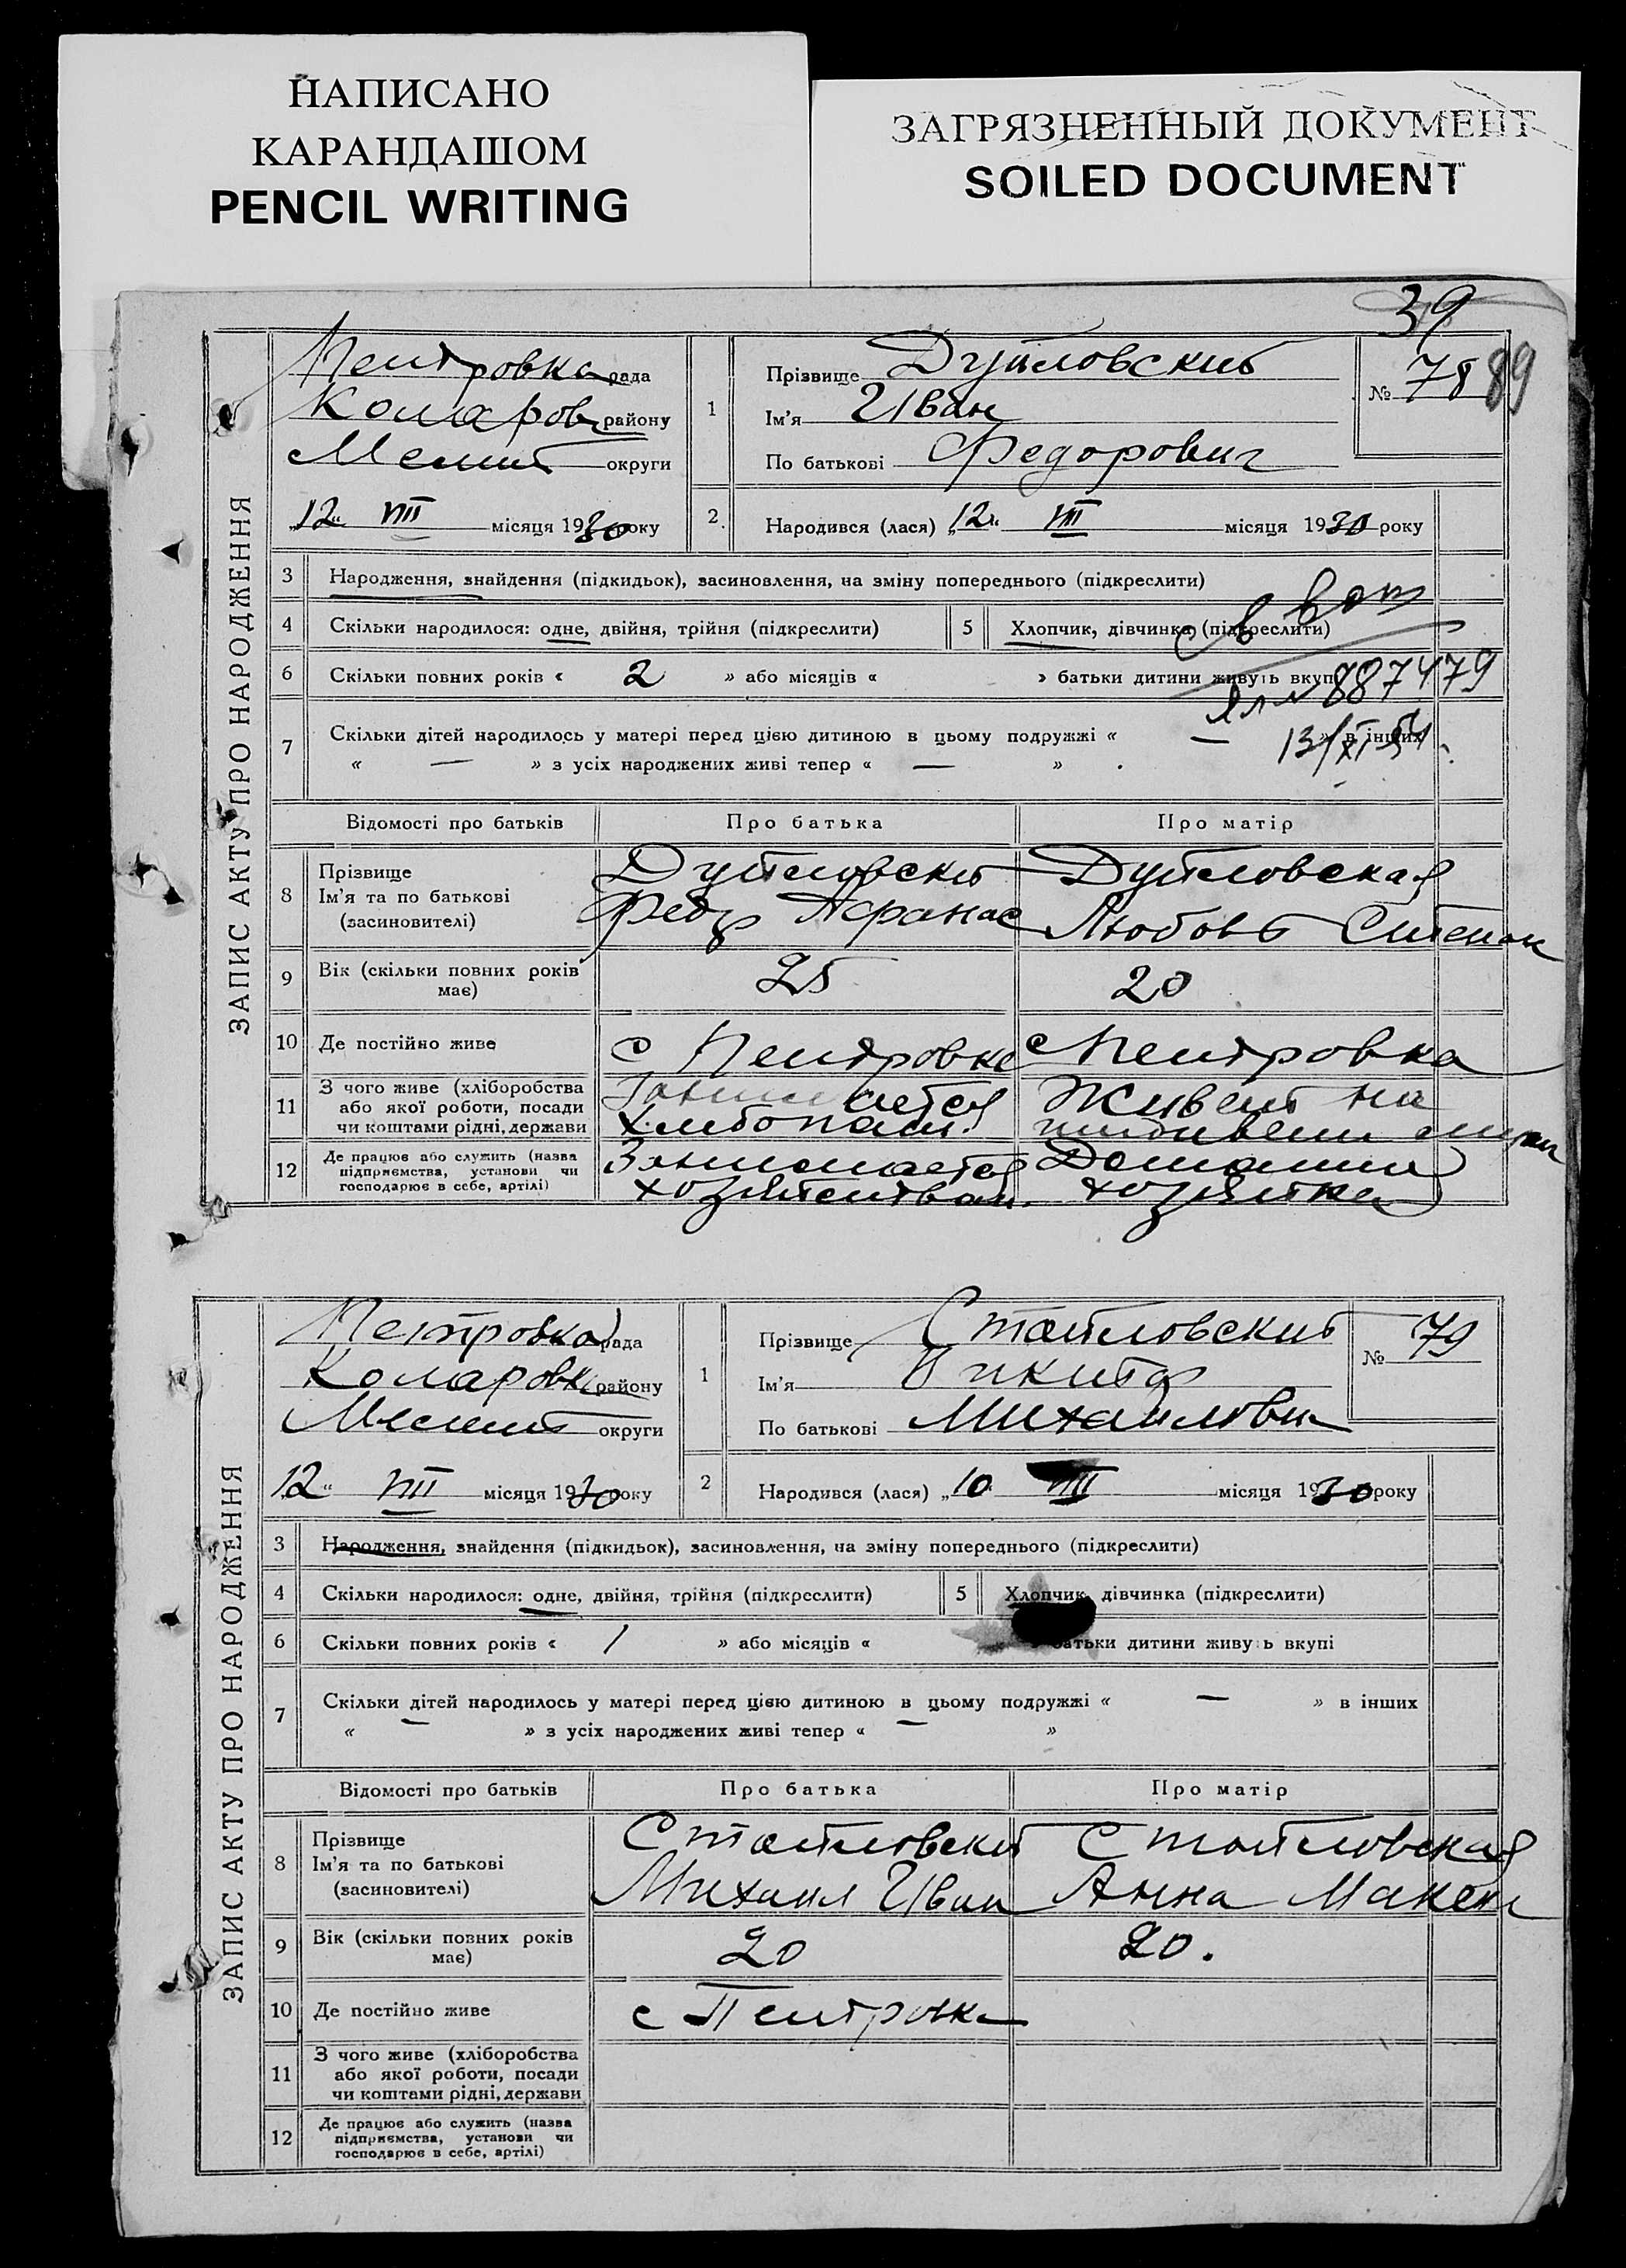 НАПИСАНО
КАРАНДАШОМ
PENCIL WRITING
ЗАГРЯЗНЕННЫЙ ДОКУМЕНТ
SOILED DOCUMENT
39
ЗАПИС АКТУ ПРО НАРОДЖЕННЯ
Петровка рада
району
округи
„12“ VIII місяця 1930 року
1
Прізвище
Ім'я Иван
По батькові Федорович
№ 78 89
2. Народився (лася) „12“ VIII місяця 1930 року
3 Народження, знайдення (підкидьок), засиновлення, на зміну попереднього (підкреслити)
4 Скільки народилося: одне, двійня, трійня (підкреслити) 5 Хлопчик, дівчинка (підкреслити)
6 Скільки повних років « 2 » або місяців « » батьки дитини живуть вкупі
№ 887479
7 Скільки дітей народилось у матері перед цією дитиною в цьому подружжі « — » в інших
13/XI 54
« — » з усіх народжених живі тепер « — »
Відомості про батьків Про батька Про матір
8 Прізвище
Ім'я та по батькові
(засиновителі)
Федор Афанас
Любовь Степан
9 Вік (скільки повних років має) 25 20
10 Де постійно живе с Петровка с Петровка
11 З чого живе (хліборобства або якої роботи, посади чи коштами рідні, держави
Живет на
12 Де працює або служить (назва підприємства, установи чи господарює в себе, артілі)
Занимается Домашня
хозяйка
ЗАПИС АКТУ ПРО НАРОДЖЕННЯ
Петровка рада
Комаровк району
округи
„12“ VIII місяця 1930 року
1
Прізвище
Ім'я Никита
По батькові Михайлович
№ 79
2 Народився (лася) „10“ VIII місяця 1930 року
3 Народження, знайдення (підкидьок), засиновлення, на зміну попереднього (підкреслити)
4 Скільки народилося: одне, двійня, трійня (підкреслити) 5 Хлопчик, дівчинка (підкреслити)
6 Скільки повних років « 1 » або місяців « батьки дитини живуть вкупі
7 Скільки дітей народилось у матері перед цією дитиною в цьому подружжі « — » в інших
« — » з усіх народжених живі тепер « — »
Відомості про батьків Про батька Про матір
8 Прізвище
Ім'я та по батькові
(засиновителі)
Михаил Иван Анна
9 Вік (скільки повних років має) 20 20.
10 Де постійно живе с Петровка
11 З чого живе (хліборобства або якої роботи, посади чи коштами рідні, держави
12 Де працює або служить (назва підприємства, установи чи господарює в себе, артілі)